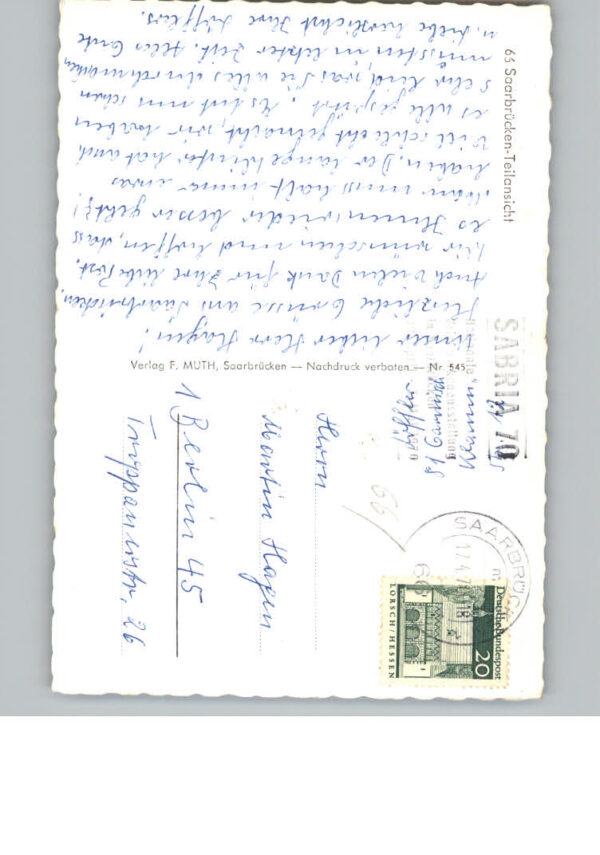 66 Saarbrücken-Teilansicht
Unser lieber Herr Hagen!
Herzliche Grüsse aus Saarbrücken.
Auch vielen Dank für Ihre liebe Post.
Wir wünschen und hoffen, dass
es Ihnen wieder besser geht!
Man muss halt immer was
haben. Der lange Winter hat auch
viel schlecht gemacht, wir haben
es alle gespürt. Es tut mir schon
sehr leid, was Sie alles durchmachen
mussten in letzter Zeit. Alles Gute
u. liebe herzlichst Ihre
Verlag F. MUTH, Saarbrücken — Nachdruck verboten — Nr. 545
SABRIA 70
SAARBRÜCK
17.4.7
18
66
Deutsche Bundespost
20
LORSCH/HESSEN
66
Herrn
Martin Hagen
1 Berlin 45
26